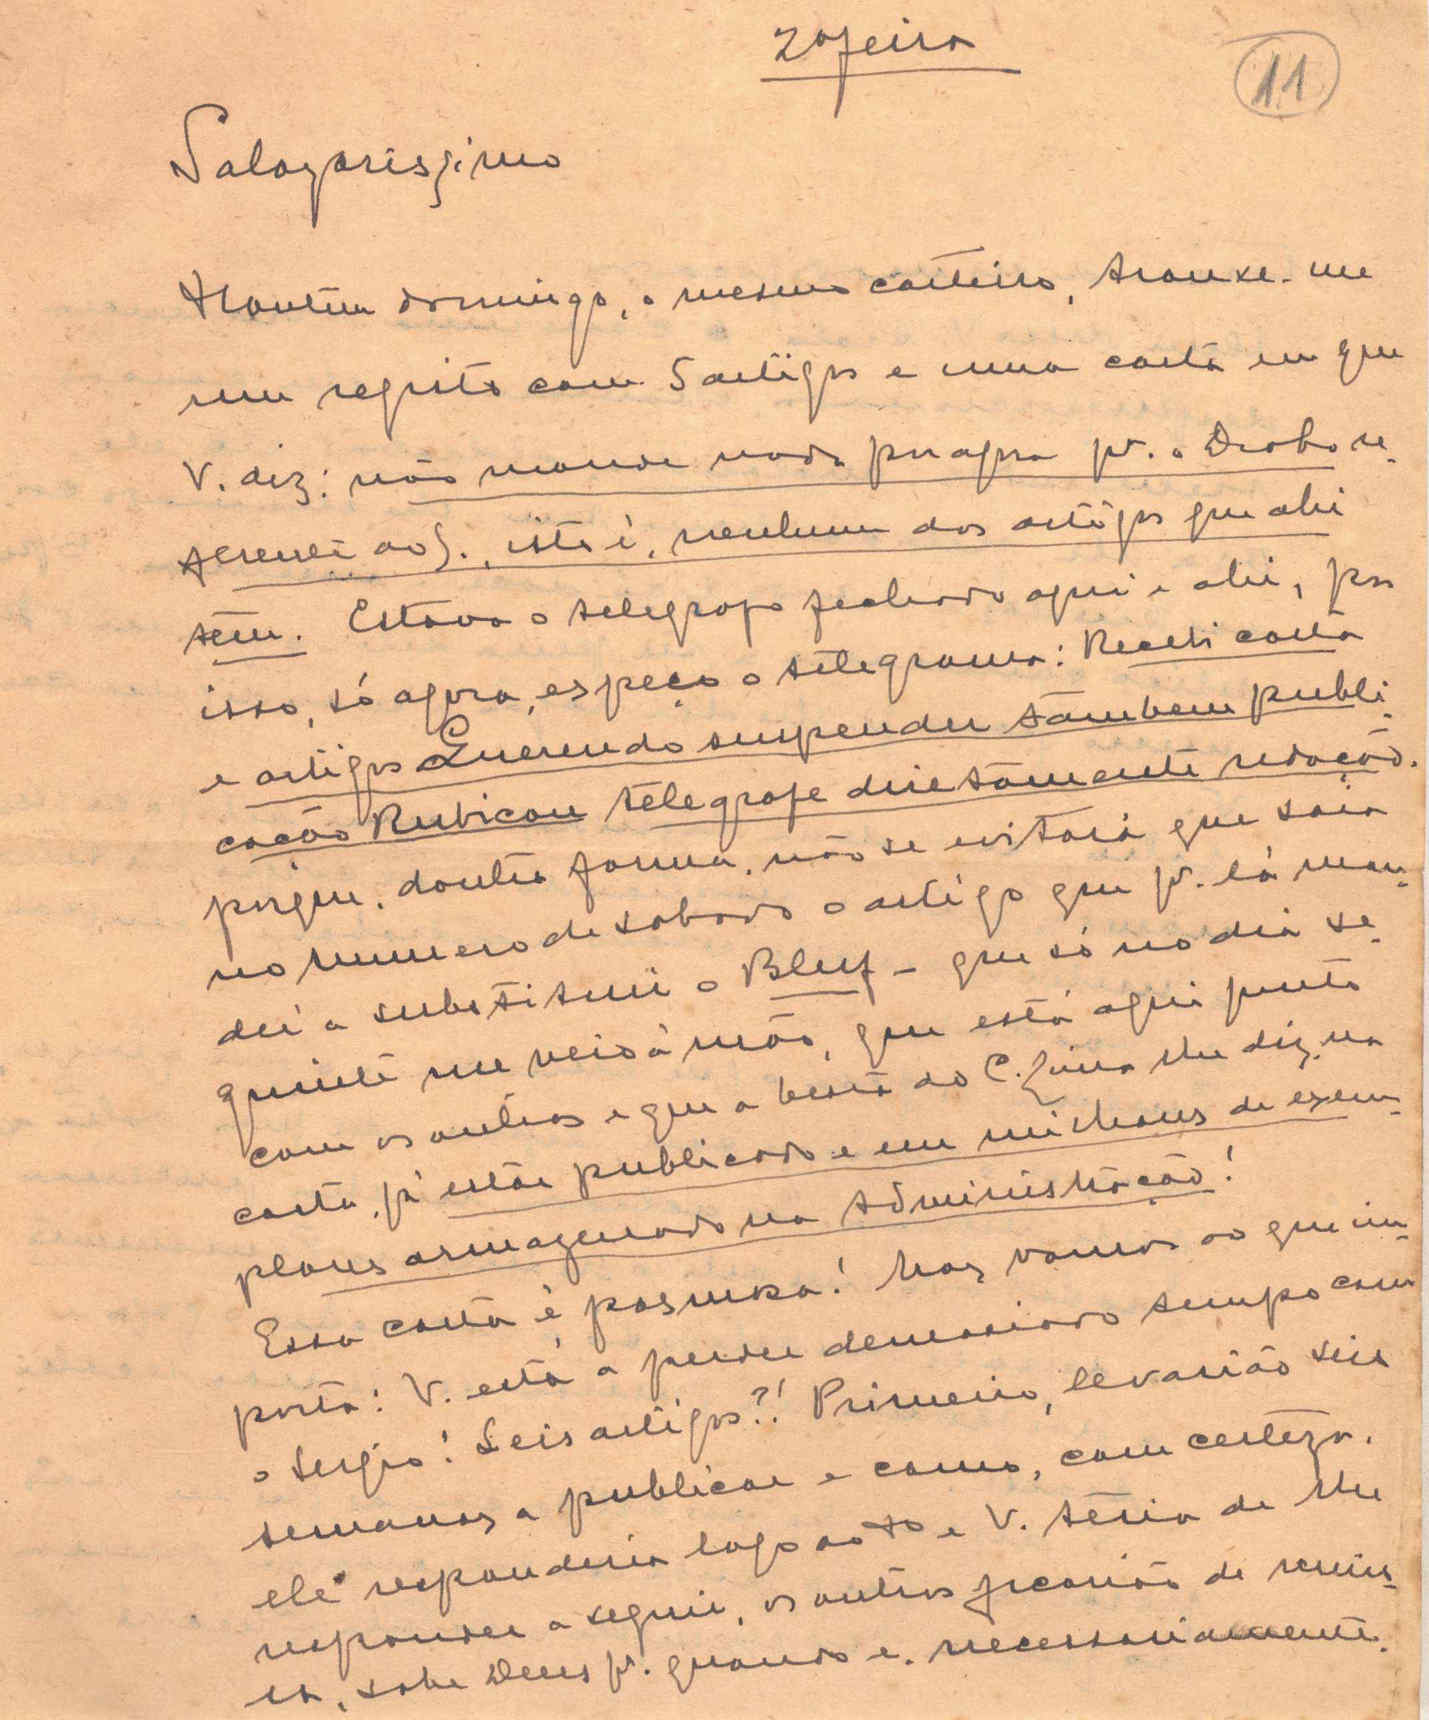 2ª feira
11
Salazarissimo
Hontem domingo, o mesmo carteiro, trouxe-me
um registo com 5 artigos e uma carta em que
V. diz: não mande nada por agora pr. o Diabo re-
ferente ao S., isto é, nenhum dos artigos que ahi
tem. Estava o telegrafo fechado aqui e ahi, por
isso, só agora, espeço o telegrama: Recebi carta
e artigos Querendo suspender tambem publi-
cação Rubicon telegrafe diretamente redação.
porque, doutra forma, não se evitará que saia
no numero de sabado o artigo que pr. lá man-
dei a substituir o Bluf - que só no dia se-
guinte me veio à mão, que está aqui junto
com os outros e que a besta do C. Lima lhe diz, na
carta, já estar publicado e em milhares de exem-
plares armazenado na Administração!
Essa carta é pasmosa! Mas vamos ao que im-
porta: V. está a perder demasiado tempo com
o Sergio! Seis artigos?! Primeiro, levarião seis
semanas a publicar e como, com certeza,
ele responderia logo ao 1º e V. teria de lhe
responder a seguir, os outros ficarião de remis-
sa, sabe Deus pr. quando e, necessariamente,